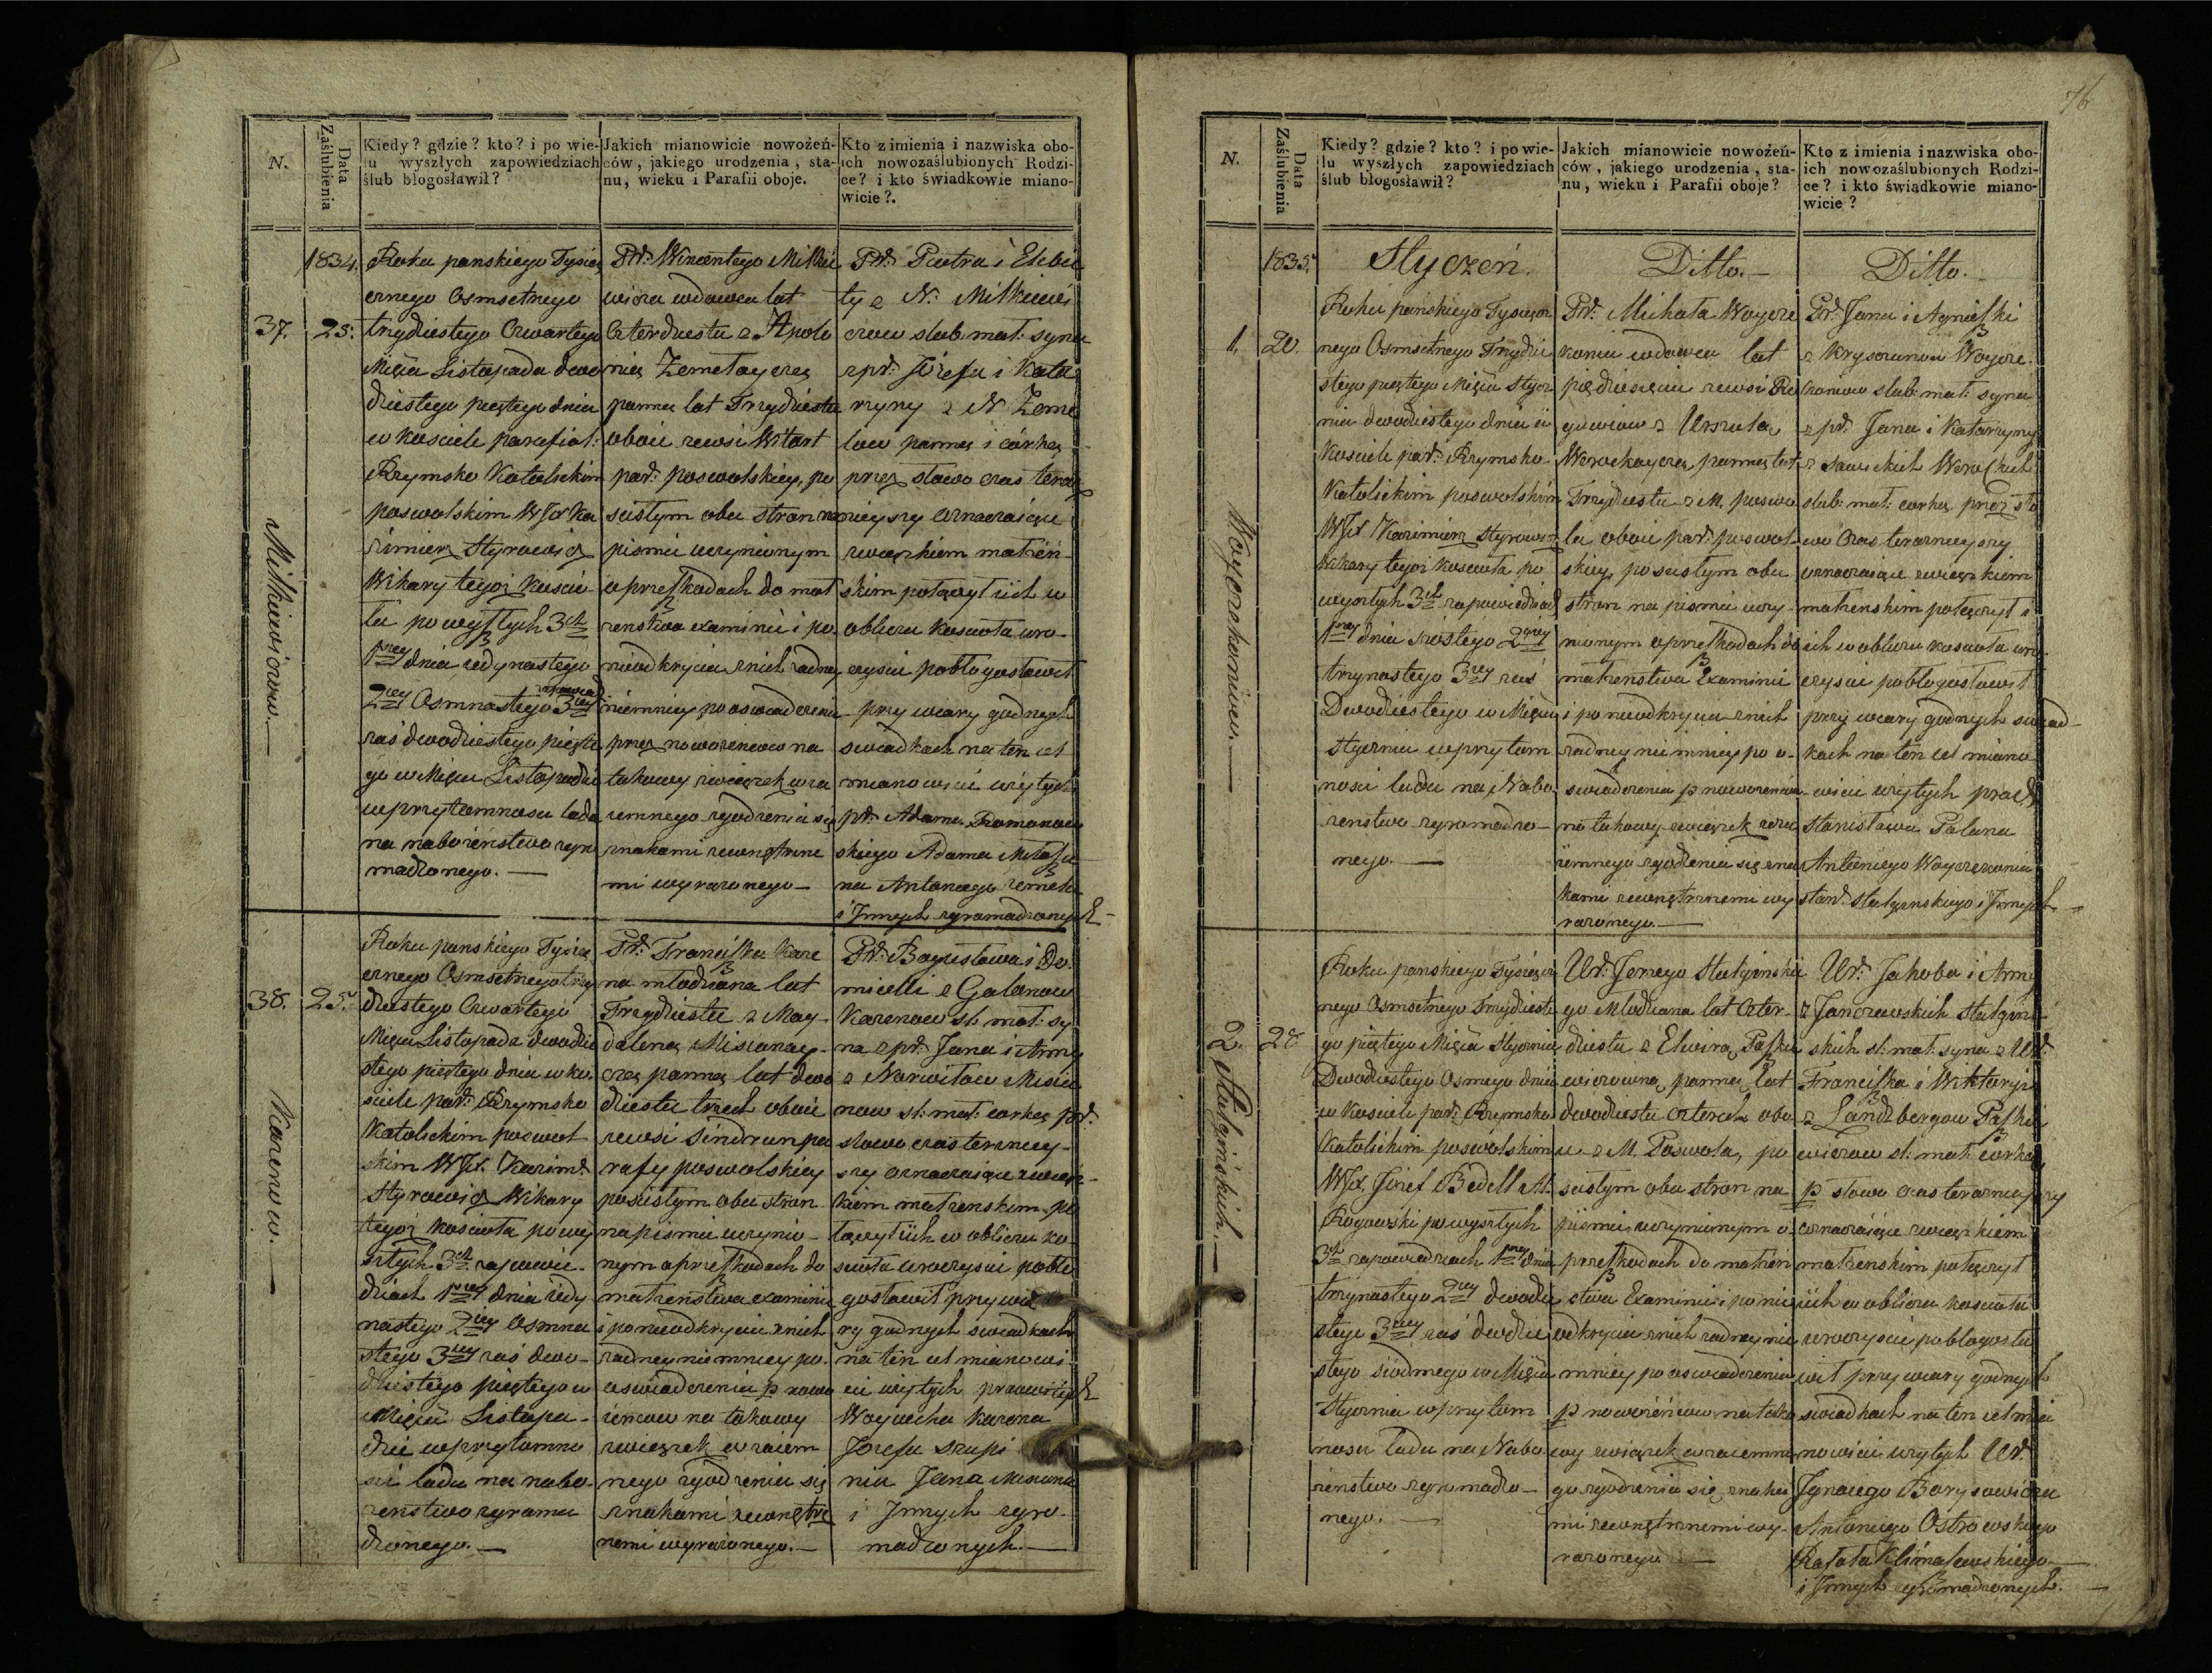 N.
Data
Zaślubienia
Kiedy? gdzie? kto? i po wie-
lu wyszłych zapowiedziach
ślub błogosławił?
Jakich mianowicie nowożeń-
ców, jakiego urodzenia, sta-
nu, wieku i Parafii oboje.
Kto z imienia i nazwiska obo-
ich nowozaślubionych Rodzi-
ce? i kto świadkowie miano-
wicie?.
1834.
37.
25.
Mitkiewiczow.—
Roku panskiego Tysiąc
cznego Osmsetnego
trzydziestego Czwartego
Mięca Listopada dwo
dziestego piątego dnia
w kosciele parafial:
Rzymsko Katolickim
poswolskim WJX Ka
zimierz Styrowicz
Wikary tegoż koscio-
ła po wyszłych 3ch
1szey dnia iedynastego
2giey Osmnastego 3ciey
zaś dwodziestego piąte
go w Mięcu Listopadzie
w przytomnosci ludu
na nabożeństwo zgro
madzonego.—
Prd: Wincentego Mitkie
wicza wdowca lat
Czterdziestu z Apolo
nią Zemełayczą
panną lat Trzydziestu
oboie zewsi Witart
par: poswolskiey, po
scisłym obu stron na
pismie uczynionym
o przeszkodach do mał
żenstwa examinie i po
nieodkryciu znich żadney
niemniey po oswiadczeniu
przez nowożencow na
takowy związek wza
iemnego zgodzenia się
znakami zewnętrzne
mi wyrażonego—
Prd: Piotra i Elżbie
ty z N. Mitkiewi
czow slub: mał: syna
z prd: Józefa i Kata
rzyny z N Zeme
low panną i córką
przez słowa czas teraz
nieyszy oznaczaiące
związkiem małżeń-
skim połączył iich w
obliczu kościoła uro-
czyscie pobłogosławił
przy wiary godnych
swiadkach na ten cel
mianowicie użytych
prd: Adama Romanow
skiego Adama Misiu
na Antoniego Zemeła
i Innych zgromadzonych—
38.
25.
Karenow.—
Roku panskiego Tysiąc
cznego Osmsetnego trzy
dziestego Czwartego
Mięca Listopada dwodzie
stego piątego dnia w ko
sciele par: Rzymsko
Katolickim poswol
skim WJX. Kazimrz
Styrowicz Wikary
tegoż kościoła po wy
szłych 3ch zapowie-
dziach 1szey dnia iedy
nastego 2giey Osmna
stego 3ciey zaś dwo-
dziestego piątego w
Mięcu Listopa-
dzie w przytomno
sci ludu na nabo-
żenstwo zgroma
dzonego.—
Prd: Franciszka Kare
na młodziana lat
Trzydziestu z May-
daleną Misiunay-
czą panną lat dwo
dziestu trzech oboie
zewsi Sindrun pa
rafy poswolskiey
po scisłym obu stron
na pismie uczynio-
nym o przeszkodach do
małżenstwa examinie
i po nieodkryciu znich
żadney nie mniey po-
oswiadczeniu p nowo
żencow na takowy
związek wzaiem
nego zgodzenia się
znakami zewnętrz
nemi wyrażonego.—
Prd: Bogusława i Do-
micelli z Galanow
Karenow sl: mał: sy
na z prd: Jana i Anny
z Narwiłow Misiu
now sl: mał: corką prz:
słowa czas terazniey-
szy oznaczaiące związ-
kiem małżenskim po
łączył iich w obliczu ko
scioła uroczyscie pobło
gosławił przy wia
ry godnych swiadkach
na ten cel mianowi
cie użytych pracowitych
Woyciecha Karena
Jozefa Szupi
nia Jana Misiuna
i Innych zgro-
madzonych.—
76
N.
Data
Zaślubienia
Kiedy? gdzie? kto? i po wie-
lu wyszłych zapowiedziach
ślub błogosławił?
Jakich mianowicie nowożeń-
ców, jakiego urodzenia, sta-
nu, wieku i Parafii oboje?
Kto z imienia i nazwiska obo-
ich nowozaślubionych Rodzi-
ce? i kto świadkowie miano-
wicie?
1835.
Styczeń.
Ditto.—
Ditto.—
1.
20.
Roku pańskiego Tysiączn
nego Osmsetnego Trzydzie
stego piątego Mięca Stycz
nia dwodziestego dnia w
Kosciele par: Rzymsko-
Katolickim poswolskim
WJX Kazimierz Styrowicz
Wikary tegoż kościoła po
wyszłych 3ch zapowiedziach
1szey dnia szóstego 2giey
trzynastego 3ciey zaś
Dwodziestego w Mięcu
Styczniu w przytom
nosci ludu na Nabo
żenstwo zgromadzo-
nego.—
Prd: Michała Woycze
kania wdowca lat
pięćdziesięciu zewsi
z Urszulą
panną lat
Trzydziestu z M. poswo
la oboie par: poswol-
skiey, po scisłym obu
stron na pismie uczy-
nionym o przeszkodach do
małżenstwa Examinie
i po nieodkryciu znich
żadney nie mniey po o-
swiadczeniu p nowożencow
na takowy związek wza
iemnego zgodzenia się zna
kami zewnętrznemi wy
rażonego.—
Prd: Jana i Agnieszki
z Woycze
kaniow slub: mał: syna
z prd: Jana i Katarzyny
z
slub: mał: corką przez sło
wa Czas teraznieyszy
oznaczaiące związkiem
małżenskim połączył i
ich w obliczu kosciola uro-
czyscie pobłogosławił
przy wiary godnych swiad-
kach na ten cel miano
wicie użytych prac:
Stanisława Palana
Antoniego Woyczekania
Stan: Stulginskiego i Innych—
2.
28.
Stulgińskich.—
Roku pańskiego Tysiączn
nego Osmsetnego Trzydzieste
go piątego Mięca Stycznia
Dwodziestego Osmego dnia
w Kosciele par: Rzymsko
Katolickim poswolskim
WJX. Józef Bedell Al.
Rogowski po wyszłych
3ch zapowiedziach 1szey dnia
trzynastego 2giey dwodzie
stego 3ciey zaś dwodzie
stego siódmego w Mięcu
Styczniu w przytom
nosci ludu na Nabo
żenstwo zgromadzo-
nego.—
Ur: Jerzego Stulginskie
go Młodziana lat Czter-
dziestu z Elwirą Paszkie
wiczowną panną lat
dwodziestu czterech obo
ie z M. Poswola, po
scisłym obu stron na
pismie uczynionym o
przeszkodach do małżeń
stwa Examinie i po nie
odkryciu znich żadney nie
mniey po oswiadczeniu
p nowożeńcow na tako
wy związek wzaiemne
go zgodzenia się znaka
mi zewnętrznemi wy-
rażonego.—
Ur: Jakoba i Anny
z Janczewskich Stulgin-
skich sl: mał: syna z Ur:
Franciszka i Wiktoryi
z Landzbergow Paszkie
wiczow sl: mał: corką
p słowa czas teraznieyszy
oznaczaiące związkiem
małżenskim połączył
iich w obliczu kościoła
uroczyscie pobłogosła
wił przy wiary godnych
swiadkach na ten cel mia
nowicie użytych Ur:
Jgnacego Borysowicza
Antoniego Ostrowskiego
Rafała Klimatowskiego—
i Innych zgromadzonych.—